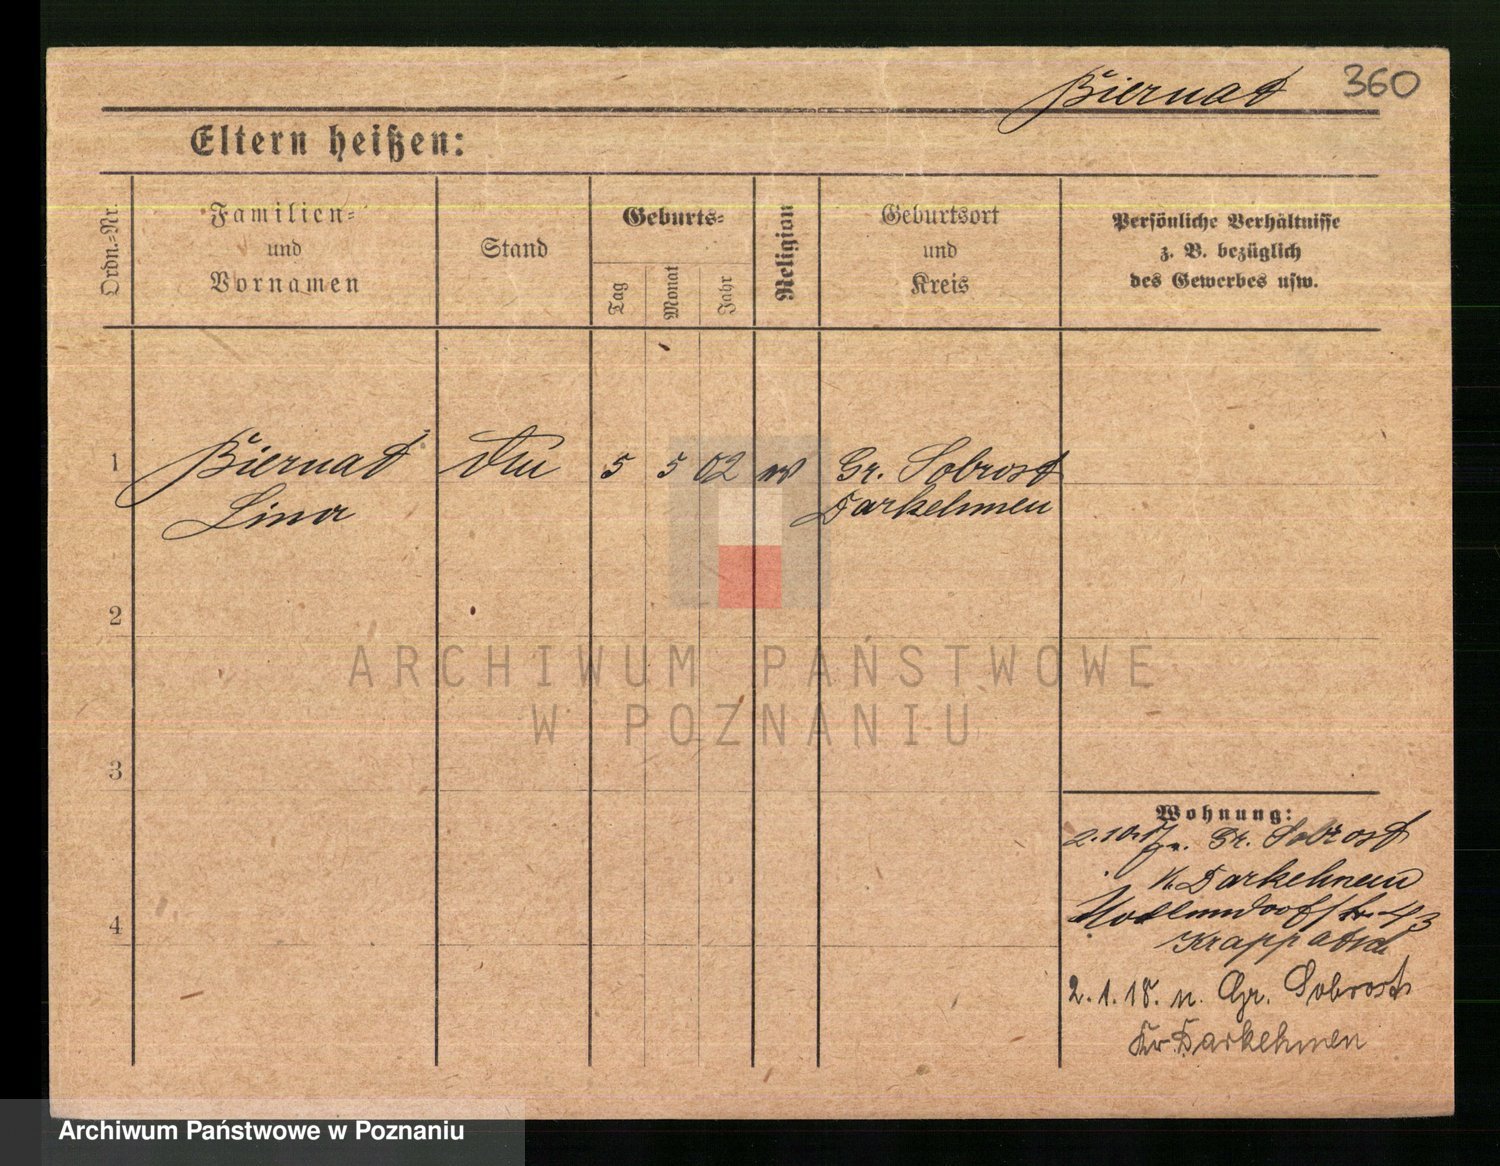 Biernat 360
Eltern heißen:
Ordn.=Nr.
Familien=
und
Vornamen
Stand
Geburts=
Tag
Monat
Jahr
Religion
Geburtsort
und
Kreis
Persönliche Verhältnisse
z. B. bezüglich
des Gewerbes usw.
1 Biernat 5 5 02 Gr. Sobrost
Lina Darkehmen
2
3
4
Wohnung:
Gr. Sobrost
K. Darkehmen
43
2.1.18. n. Gr. Sobrost
Kr. Darkehmen
ARCHIWUM PAŃSTWOWE
W POZNANIU
Archiwum Państwowe w Poznaniu